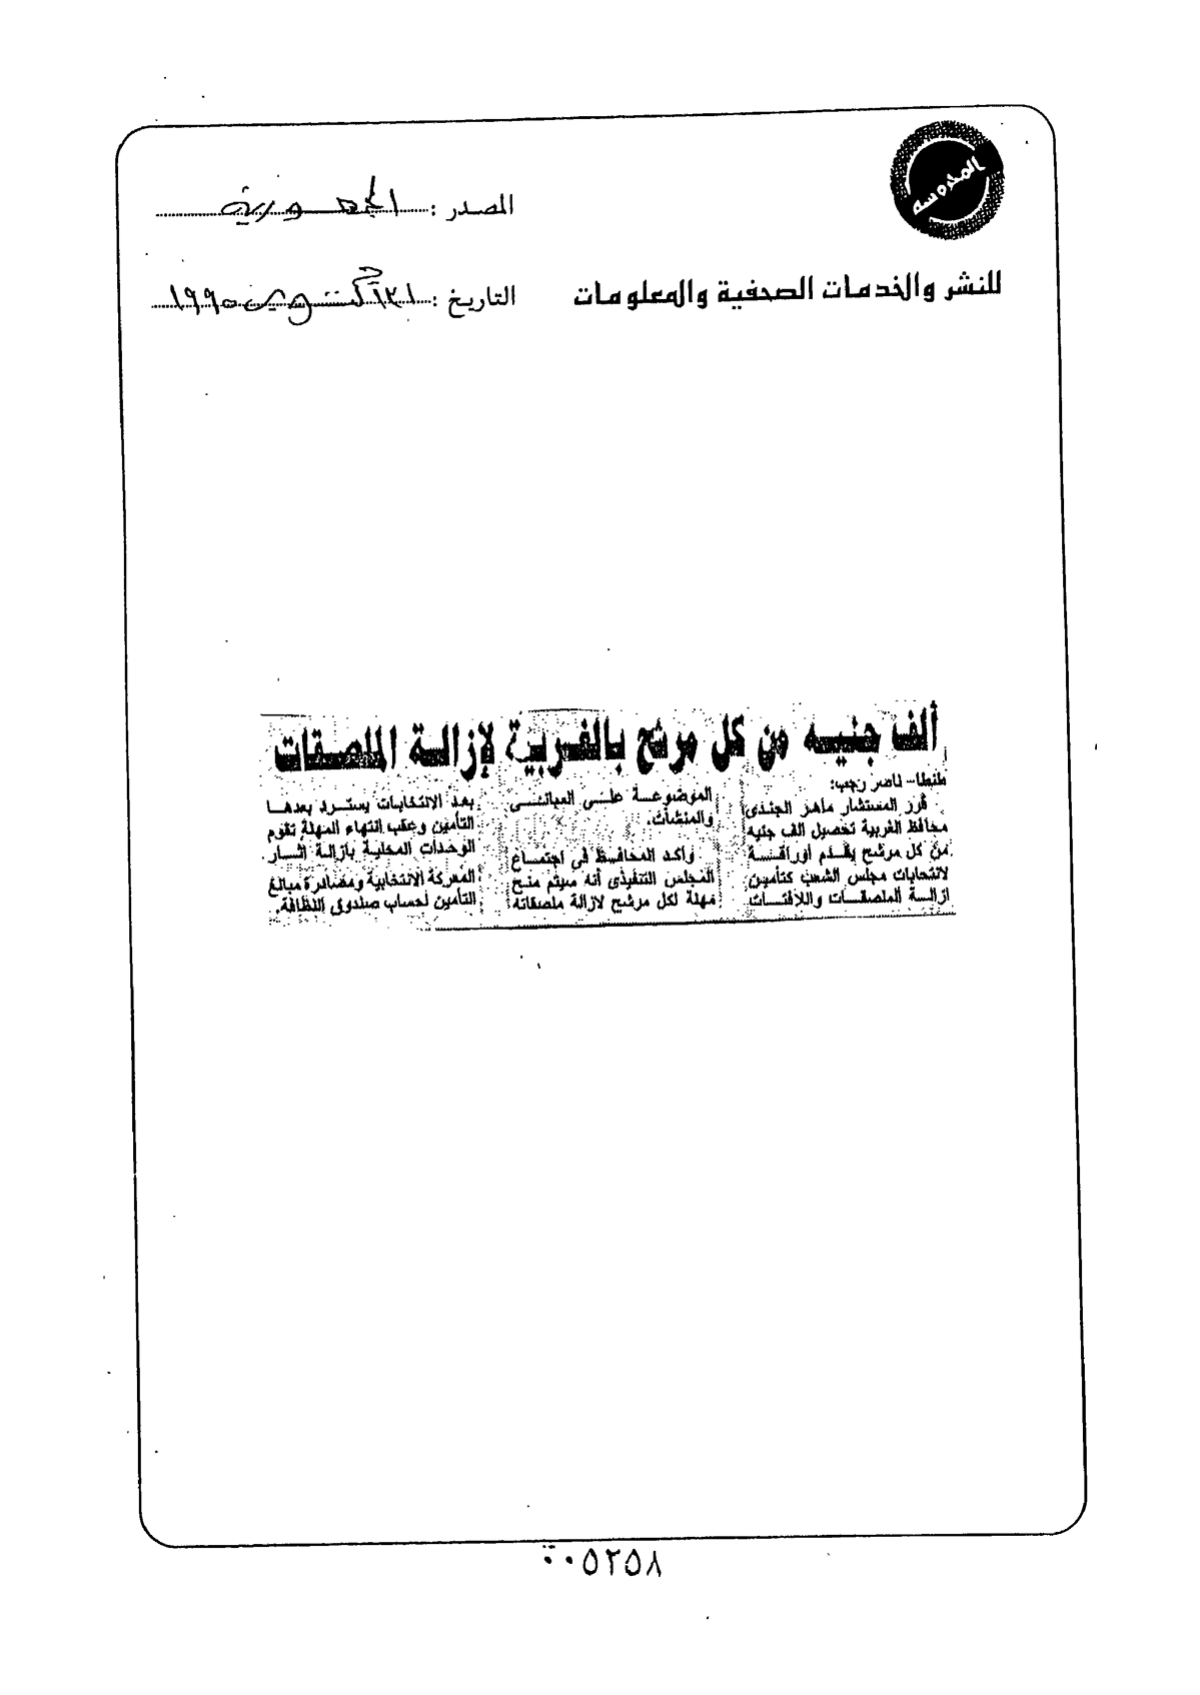 المحروسة
المصدر : الجمهورية
للنشر والخدمات الصحفية والمعلومات
التاريخ : ٣١ أكتوبر ١٩٩٥
ألف جنيه من كل مرشح بالغربية لإزالة الملصقات
طنطا - ناصر رجب:
قرر المستشار ماهر الجندى
محافظ الغربية تحصيل الف جنيه
من كل مرشح يقدم أوراقه
لانتخابات مجلس الشعب كتأمين
ازالة الملصقات واللافتات
الموضوعة على المبانى
والمنشآت.
وأكد المحافظ فى اجتماع
المجلس التنفيذى أنه سيتم منح
مهلة لكل مرشح لازالة ملصقاته
بعد الانتخابات يسترد بعدها
التأمين وعقب انتهاء المهلة تقوم
الوحدات المحلية بازالة آثار
المعركة الانتخابية ومصادرة مبالغ
التأمين لحساب صندوق النظافة.
٠٠٥٢٥٨